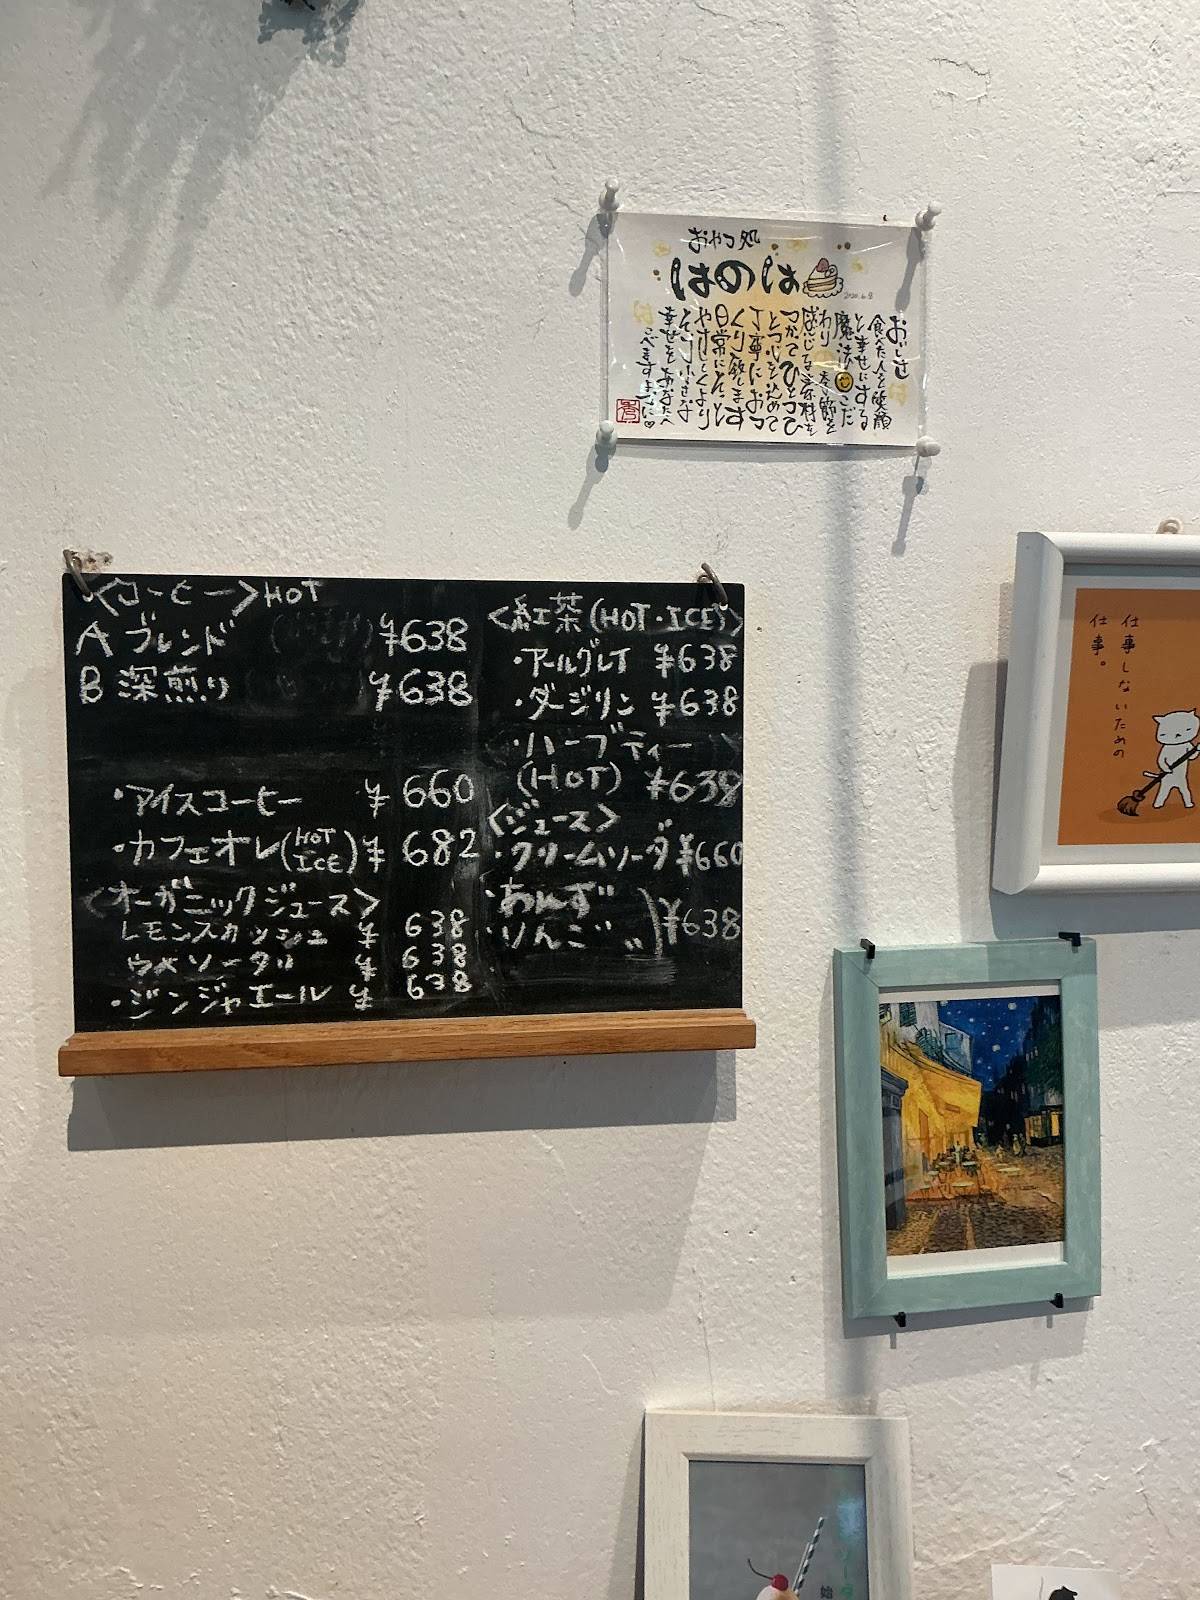 おやつ処
はのは
2020.6.8
おいしさ
食べた人を笑顔
と幸せにする
魔法 こだ
わり 季節を
感じる素材を
つかってひとつひ
とつ心を込めて
丁事におつ
くり致します
日常にそっと
やさしくより
そう小さな
幸せをあなたへ
こべますように♡
<コーヒー>HOT
A ブレンド ¥638
B 深煎り ¥638
・アイスコーヒー ¥660
・カフェオレ(HOT ICE) ¥682
<オーガニックジュース>
レモンスカッシュ ¥638
ウメソーダ ¥638
・ジンジャエール ¥638
<紅茶(HOT・ICE)>
・アールグレイ ¥638
・ダージリン ¥638
・ハーブティー
(HOT) ¥638
<ジュース>
・クリームソーダ ¥660
・あんず
・りんご 〃 )¥638
仕事しないための
仕事。
ソーダ
始